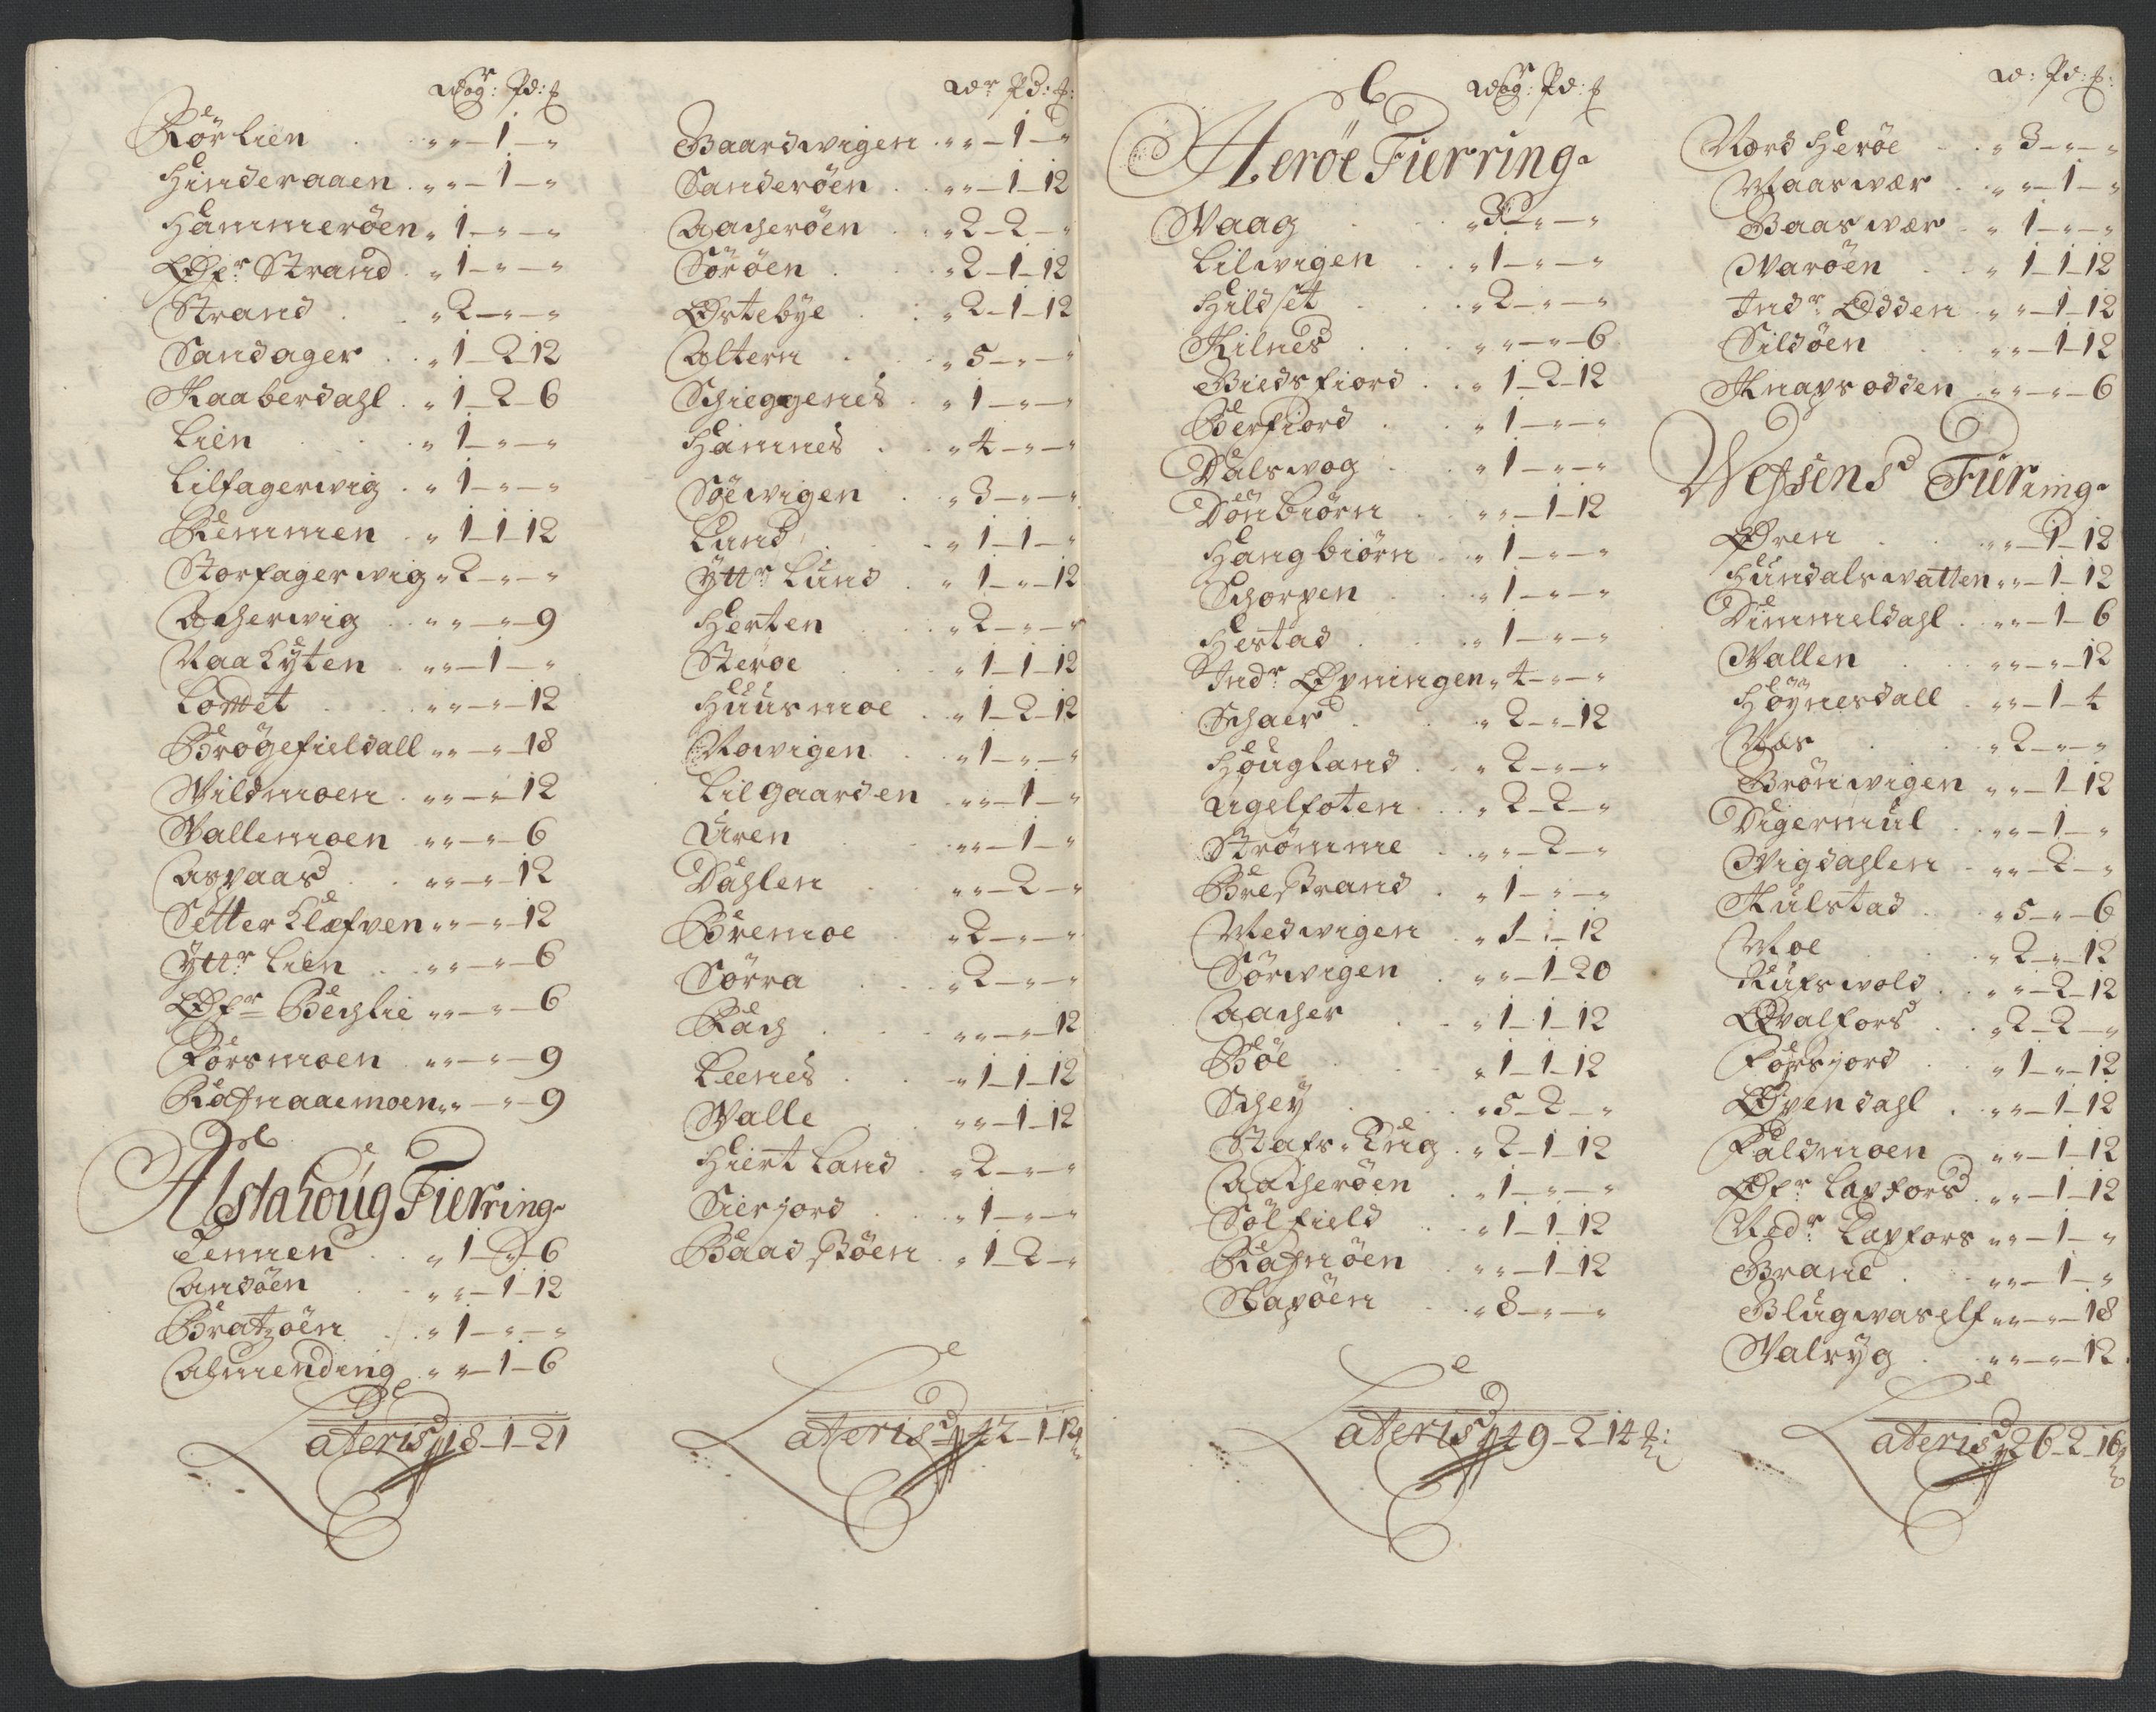 Wog: Pd: ₰
Rörlien „ „ — 1 — „
Hinderaaen „ „ — 1 — „
Hammerøen „ 1 — „ — „
Øfr Strand „ 1 — „ — „
Strand „ 2 — „ — „
Sandager „ 1 — 2 — 12
Kaaberdahl „ 1 — 2 — 6
Lien „ 1 — „ — „
Lilfagerwig „ 1 — „ — „
Remmen „ 1 — 1 — 12
Storfagerwig „ 2 — „ — „
Acherwig „ „ — „ — 9
Naakyten „ „ — 1 — „
Lomet „ „ — „ — 12
Brøgefieldall „ „ — „ — 18
Wildmoen „ „ — „ — 12
Wallemoen „ „ — „ — 6
Aspaas „ „ — „ — 12
Setterklefven „ „ — „ — 12
Yttr Lien „ „ — „ — 6
Øfr Bechlie „ „ — „ — 6
Forsmoen „ „ — „ — 9
Rafnaaemoen „ „ — „ — 9
Alstahoug Fierring
Tennen „ 1 — „ — 6
Andöen „ „ — 1 — 12
Bratzöen „ 1 — „ — „
Almending „ „ — 1 — 6
Lateris 18 — 1 — 21
Wr Pd: ₰:
Baardwigen „ „ — 1 — „
Sanderöen „ „ — 1 — 12
Aacheröen „ 2 — 2 — „
Söröen „ 2 — 1 — 12
Østebye „ 2 — 1 — 12
Altern „ 5 — „ — „
Schieggenes „ 1 — „ — „
Hamnes „ 4 — „ — „
Söewigen „ 3 — „ — „
Lund „ 1 — 1 — „
Yttr Lund „ 1 — „ — 12
Herten „ 2 — „ — „
Steröe „ 1 — 1 — 12
Huusmoe „ 1 — 2 — 12
Nowigen „ 1 — „ — „
Lilgaarden „ „ — 1 — „
Uren „ „ — 1 — „
Dahlen „ „ — 2 — „
Bremoe „ 2 — „ — „
Sörra „ 2 — „ — „
Rach „ „ — „ — 12
Leenes „ 1 — 1 — 12
Walle „ „ — 1 — 12
Hiertland „ 2 — „ — „
Sierjord „ 1 — „ — „
Baadstöen „ 1 — 2 — „
Lateris 42 — 1 — 12
Wog: Pd: ₰
Heröe Fierring
Waag „ 3 — „ — „
Lilwigen „ 1 — „ — „
Hildset „ 2 — „ — „
Kilnes „ „ — „ — 6
Biedsfiord „ 1 — 2 — 12
Berfiord „ 1 — „ — „
Dalswog „ 1 — „ — „
Dönbiörn „ „ — 1 — 12
Hangbiörn „ 1 — „ — „
Schorpen „ 1 — „ — „
Hestad „ 1 — „ — „
Indr Øpningen „ 4 — „ — „
Schaer „ 2 — „ — 12
Hougland „ 2 — „ — „
Ugelfoten „ 2 — 2 — „
Strömme „ „ — 2 — „
Brestrand „ 1 — „ — „
Medwigen „ 1 — 1 — 12
Sörwigen „ „ — 1 — 20
Aacher „ 1 — 1 — 12
Böe „ 1 — 1 — 12
Schey „ 5 — 2 — „
Stafs Krig „ 2 — 1 — 12
Aacheröen „ 1 — „ — „
Sölfield „ 1 — 1 — 12
Rafnöen „ „ — 1 — 12
Slapöen „ 8 — „ — „
Lateris 49 — 2 — 14 ₰:
W: Pd: ₰:
Nord Heröe „ 3 — „ — „
Maaswær „ „ — 1 — „
Baaswær „ 1 — „ — „
Waröen „ 1 — 1 — 12
Indr Odden „ „ — 1 — 12
Sildöen „ „ — 1 — 12
Knapsodden „ „ — „ — 6
Wefsens Fiering
Øren „ „ — 1 — 12
Hundalswatten „ „ — 1 — 12
Dimmeldahl „ „ — 1 — 6
Wallen „ „ — „ — 12
Höynesdall „ „ — 1 — 4
Næs „ 2 — „ — „
Brönwigen „ „ — 1 — 12
Digermul „ „ — 1 — „
Wigdahlen „ „ — 2 — „
Kulstad „ 5 — „ — 6
Moe „ 2 — „ — 12
Rufswold „ „ — 2 — 12
Øvalfors „ 2 — 2 — „
Forsjord „ 1 — „ — 12
Øpendahl „ „ — 1 — 12
Faldmoen „ „ — 1 — 12
Øfr Lapfors „ „ — 1 — 12
Nedr Lapfors „ „ — 1 — „
Brane „ „ — 1 — „
Blugwaself „ „ — „ — 18
Walryg „ „ — „ — 12
Lateris 26 — 2 — 16